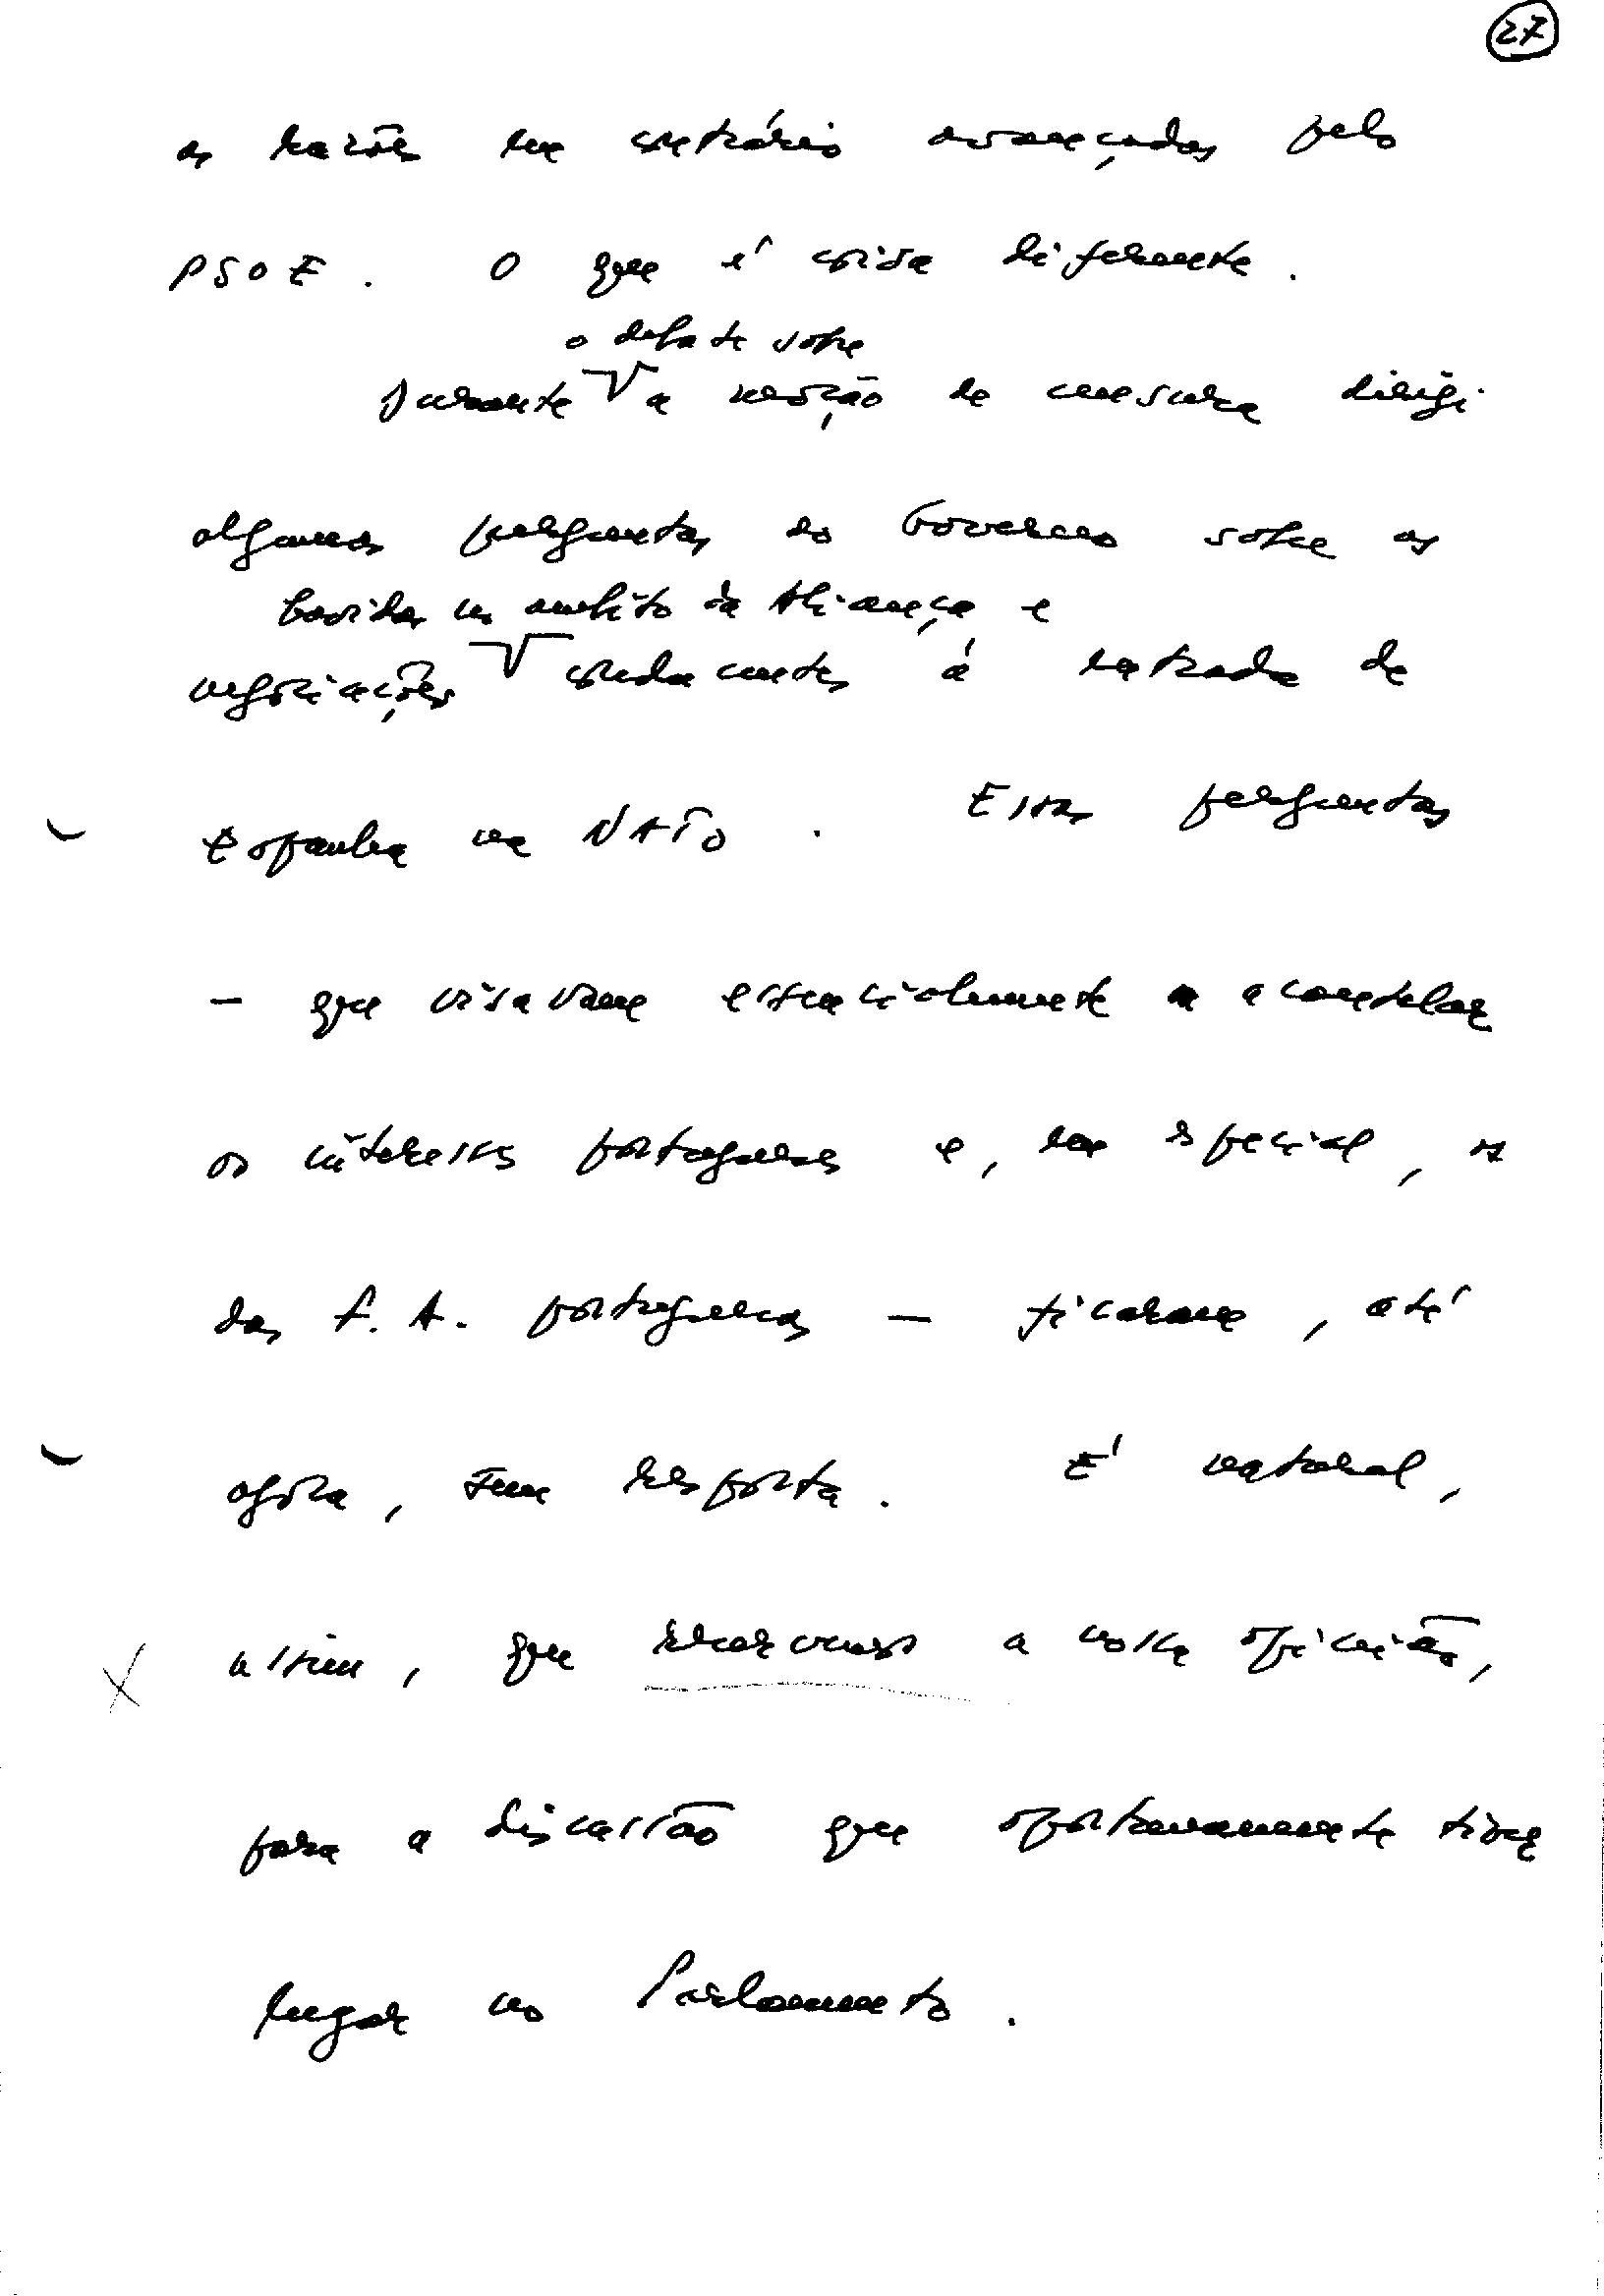 27
as razões em contrário avançadas pelo
PSOE. O que é coisa diferente.
o debate sobre
Durante a moção de censura dirigi
algumas perguntas ao Governo sobre as
havidas no âmbito da Aliança e
negociações conducentes à entrada de
Espanha na NATO. Essas perguntas
- que visavam essencialmente a acautelar
os interesses portugueses e, em especial, os
das F.A. portuguesas — ficaram, até
agora, sem resposta. É natural,
assim, que reservemos a nossa opinião,
para a discussão que oportunamente tiver
lugar no Parlamento.